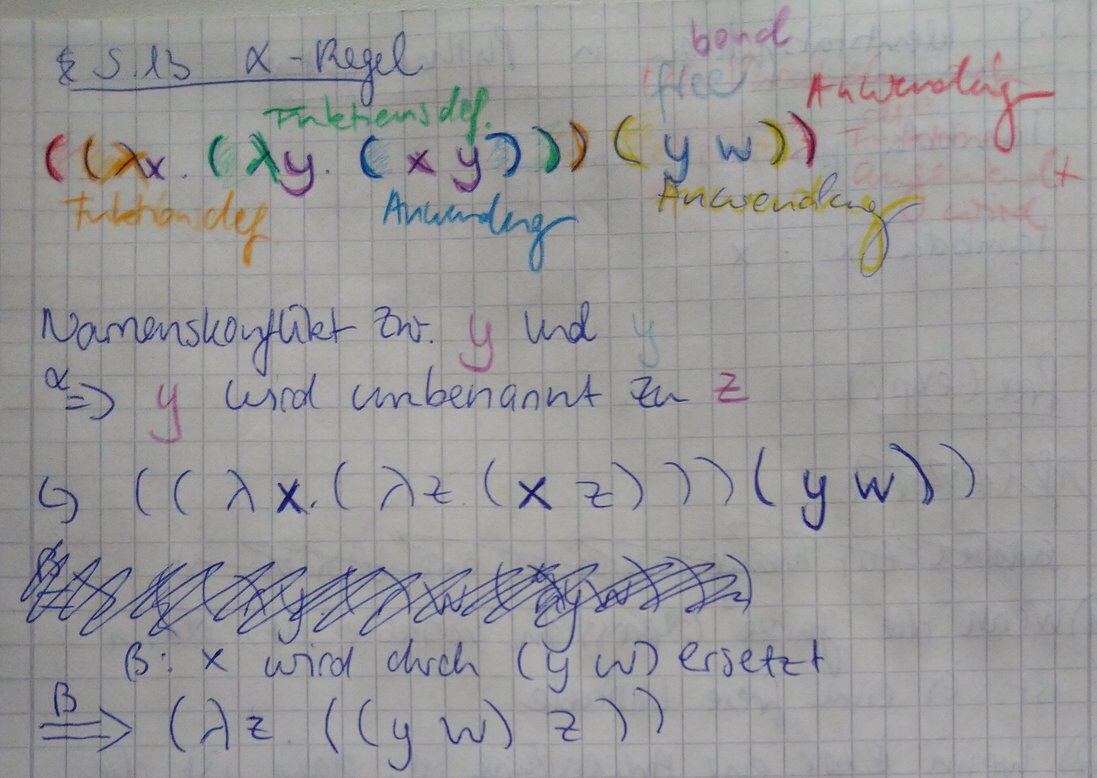 S. 13 α-Regel
bond
free
Anwendung
Funktionsdef.
((λx. (λy. (x y))) (y w))
Funktionsdef
Anwendung
Anwendung
Namenskonflikt zw. y und y
α⇒ y wird umbenannt zu z
↳ ((λx.(λz.(x z)))(y w))
β: x wird durch (y w) ersetzt
β⇒ (λz. ((y w) z))